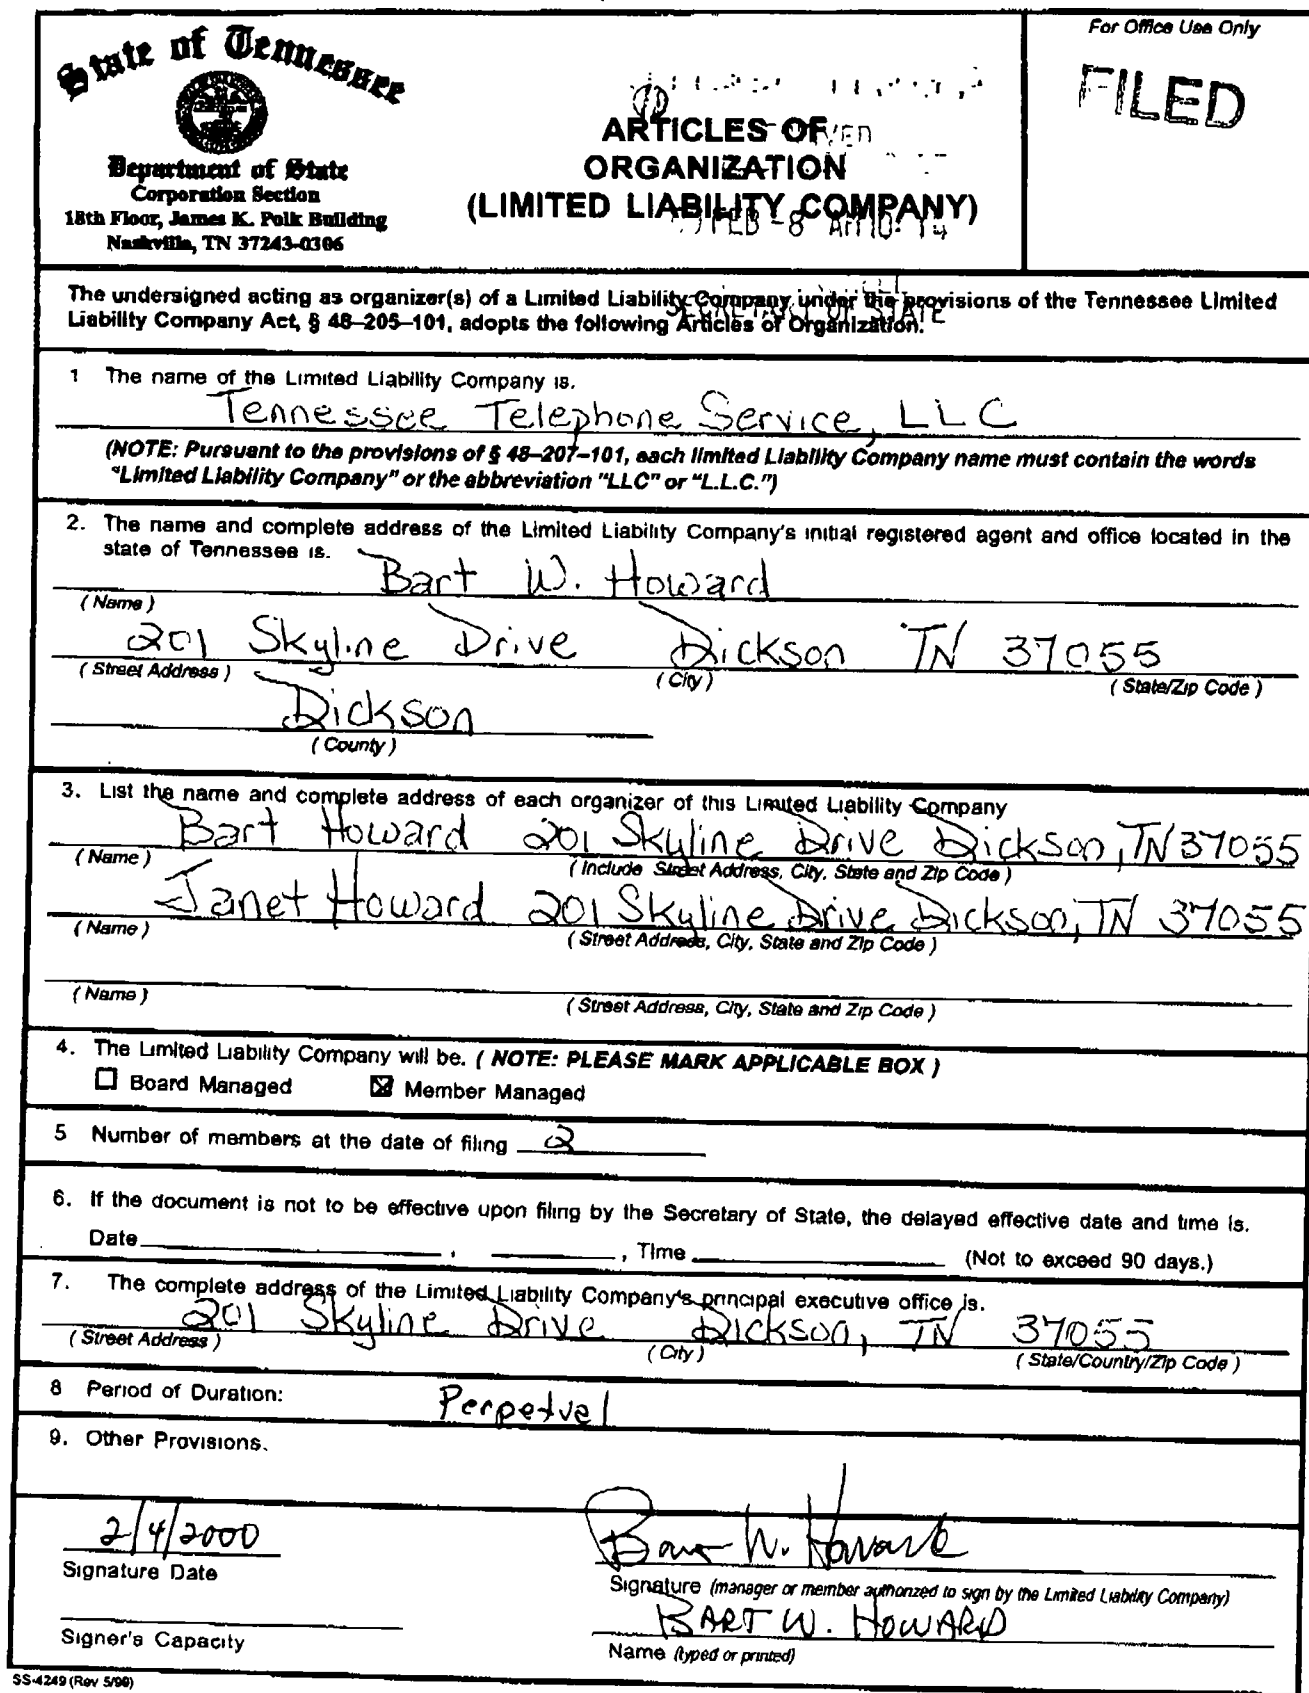 State of Tennessee
Department of State
Corporation Section
18th Floor, James K. Polk Building
Nashville, TN 37243-0306
ARTICLES OF
ORGANIZATION
(LIMITED LIABILITY COMPANY)
FEB -8 AM 10: 14
SECRETARY OF STATE
For Office Use Only
FILED
The undersigned acting as organizer(s) of a Limited Liability Company under the provisions of the Tennessee Limited
Liability Company Act, § 48–205–101, adopts the following Articles of Organization.
1 The name of the Limited Liability Company is.
Tennessee Telephone Service, LLC
(NOTE: Pursuant to the provisions of § 48–207–101, each limited Liability Company name must contain the words
"Limited Liability Company" or the abbreviation "LLC" or "L.L.C.")
2. The name and complete address of the Limited Liability Company's initial registered agent and office located in the
state of Tennessee is.
Bart W. Howard
(Name)
201 Skyline Drive Dickson TN 37055
(Street Address) (City) (State/Zip Code)
Dickson
(County)
3. List the name and complete address of each organizer of this Limited Liability Company
Bart Howard 201 Skyline Drive Dickson, TN 37055
(Name) (Include Street Address, City, State and Zip Code)
Janet Howard 201 Skyline Drive Dickson, TN 37055
(Name) (Street Address, City, State and Zip Code)
(Name) (Street Address, City, State and Zip Code)
4. The Limited Liability Company will be. (NOTE: PLEASE MARK APPLICABLE BOX)
☐ Board Managed ☒ Member Managed
5 Number of members at the date of filing 2
6. If the document is not to be effective upon filing by the Secretary of State, the delayed effective date and time is.
Date , , Time (Not to exceed 90 days.)
7. The complete address of the Limited Liability Company's principal executive office is.
201 Skyline Drive Dickson, TN 37055
(Street Address) (City) (State/Country/Zip Code)
8 Period of Duration: Perpetual
9. Other Provisions.
2/4/2000 Bart W. Howard
Signature Date Signature (manager or member authorized to sign by the Limited Liability Company)
BART W. HOWARD
Signer's Capacity Name (typed or printed)
SS-4249 (Rev 5/99)